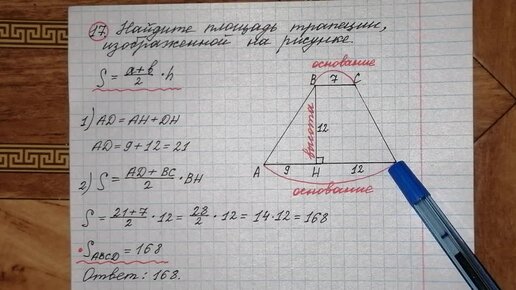 17. Найдите площадь трапеции,
изображенной на рисунке.
S = a+b/2 · h
1) AD = AH + DH
AD = 9 + 12 = 21
2) S = AD + BC/2 · BH
S = 21+7/2 · 12 = 28/2 · 12 = 14 · 12 = 168
S ABCD = 168
Ответ: 168.
основание
B 7 C
высота
12
A 9 H 12
основание